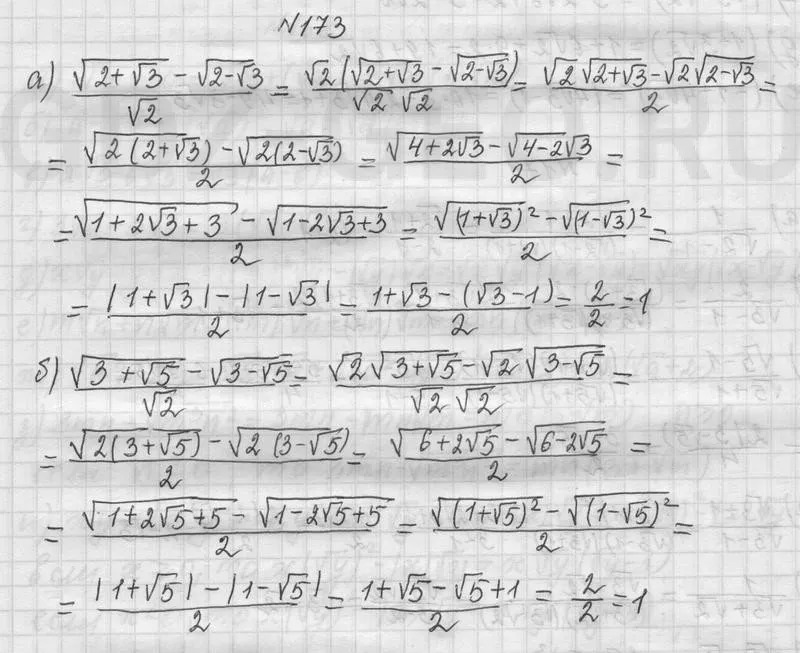 №173
а) (√(2+√3) - √(2-√3))/√2 = √2(√(2+√3) - √(2-√3))/(√2 √2) = (√2 √(2+√3) - √2 √(2-√3))/2 =
= (√(2(2+√3)) - √(2(2-√3)))/2 = (√(4+2√3) - √(4-2√3))/2 =
= (√(1+2√3+3) - √(1-2√3+3))/2 = (√((1+√3)²) - √((1-√3)²))/2 =
= (|1+√3| - |1-√3|)/2 = (1+√3-(√3-1))/2 = 2/2 = 1
б) (√(3+√5) - √(3-√5))/√2 = (√2 √(3+√5) - √2 √(3-√5))/(√2 √2) =
= (√(2(3+√5)) - √(2(3-√5)))/2 = (√(6+2√5) - √(6-2√5))/2 =
= (√(1+2√5+5) - √(1-2√5+5))/2 = (√((1+√5)²) - √((1-√5)²))/2 =
= (|1+√5| - |1-√5|)/2 = (1+√5-√5+1)/2 = 2/2 = 1